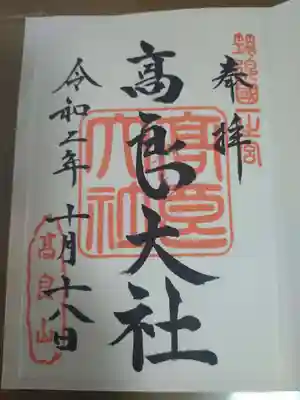 奉拝
筑後國一之宮
高良大社
髙良大社
令和二年十月十八日
高良山